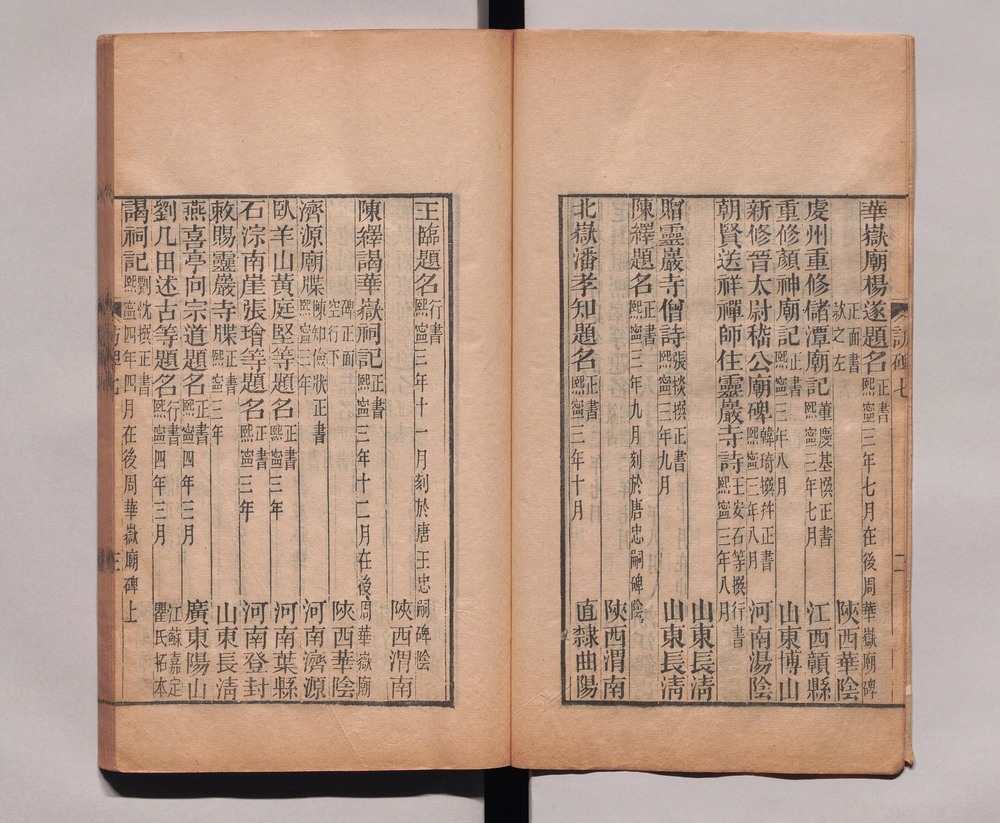 華嶽廟楊遂題名正書熙寧三年七月在後周華嶽廟碑
正面書款之左 陝西華陰
虔州重修儲潭廟記董慶基撰正書熙寧三年七月 江西贛縣
重修顏神廟記正書熙寧三年八月 山東博山
新修晉太尉嵇公廟碑韓琦撰幷正書熙寧三年八月 河南湯陰
朝賢送祥禪師住靈巖寺詩王安石等撰行書熙寧三年八月
山東長淸
贈靈巖寺僧詩張掞撰正書熙寧三年九月 山東長淸
陳繹題名正書熙寧三年九月刻於唐忠嗣碑陰
陝西渭南
北嶽潘孝知題名正書熙寧三年十月 直隸曲陽
訪碑七
二
王臨題名行書熙寧三年十一月刻於唐王忠嗣碑陰
陝西渭南
陳繹謁華嶽祠記正書熙寧三年十二月在後周華嶽廟
碑正面空行下 陝西華陰
濟源廟牒陳知儉狀正書熙寧三年 河南濟源
臥羊山黃庭堅等題名正書熙寧三年 河南葉縣
石淙南崖張璔等題名正書熙寧三年 河南登封
敕賜靈巖寺牒正書熙寧三年 山東長淸
燕喜亭向宗道題名正書熙寧四年三月 廣東陽山
劉几田述古等題名行書熙寧四年三月 江蘇嘉定瞿氏拓本
謁祠記劉忱撰正書熙寧四年四月在後周華嶽廟碑上
訪碑七
三